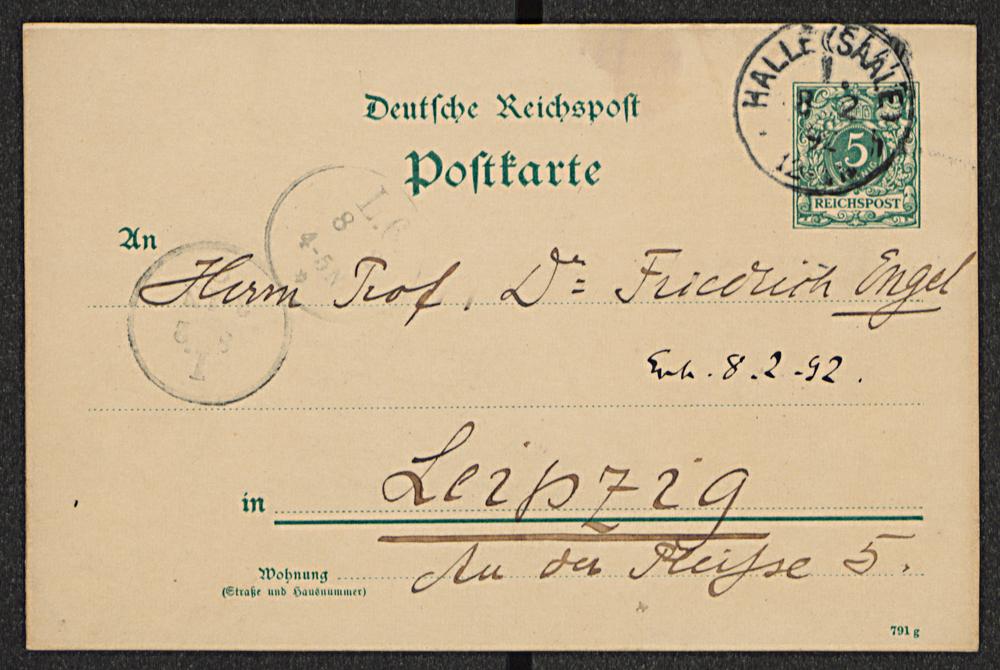 Deutsche Reichspost
Postkarte
HALLE (SAALE)
1.
8 2
92
5
REICHSPOST
An
Herrn Prof. Dr Friedrich Engel
8
4-5N
8.2.92.
in Leipzig
Wohnung An der Pleisse 5.
(Straße und Hausnummer)
791 g